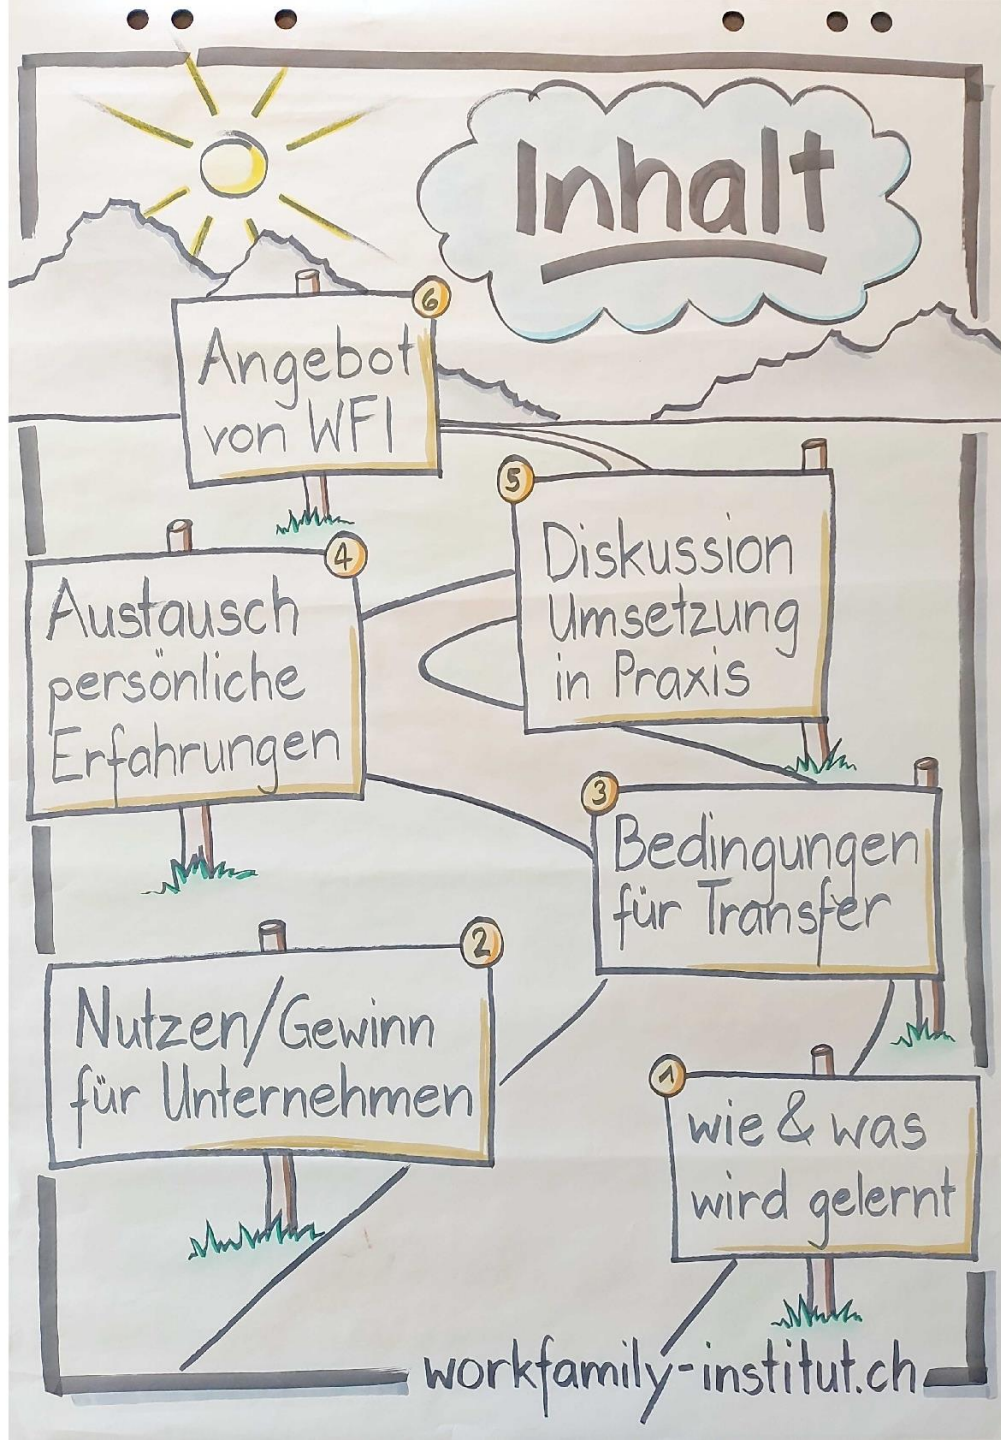 Inhalt
6
Angebot
von WFI
5
Diskussion
Umsetzung
in Praxis
4
Austausch
persönliche
Erfahrungen
3
Bedingungen
für Transfer
2
Nutzen/Gewinn
für Unternehmen
1
wie & was
wird gelernt
workfamily-institut.ch